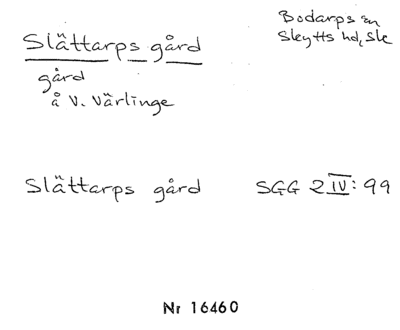 Slättarps gård
Bodarps sn
Skytts hd, Sk
gård
å V. Värlinge
Slättarps gård SGG 2 IV: 99
Nr 16460